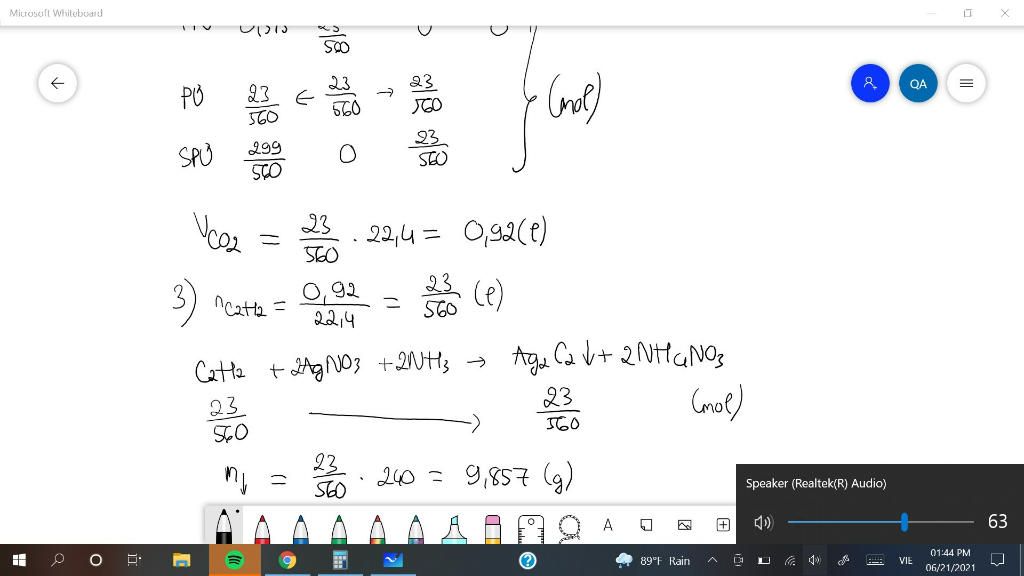 Microsoft Whiteboard
23/560 0 0
QA
PƯ 23/560 ← 23/560 → 23/560
(mol)
SPƯ 299/560 0 23/560
V CO2 = 23/560 . 22,4 = 0,92(l)
3) n C2H2 = 0,92/22,4 = 23/560 (l)
C2H2 + 2AgNO3 + 2NH3 → Ag2C2↓ + 2NH4NO3
23/560 ⟶ 23/560 (mol)
m↓ = 23/560 . 240 = 9,857 (g)
Speaker (Realtek(R) Audio)
63
A
89°F Rain
VIE
01:44 PM
06/21/2021